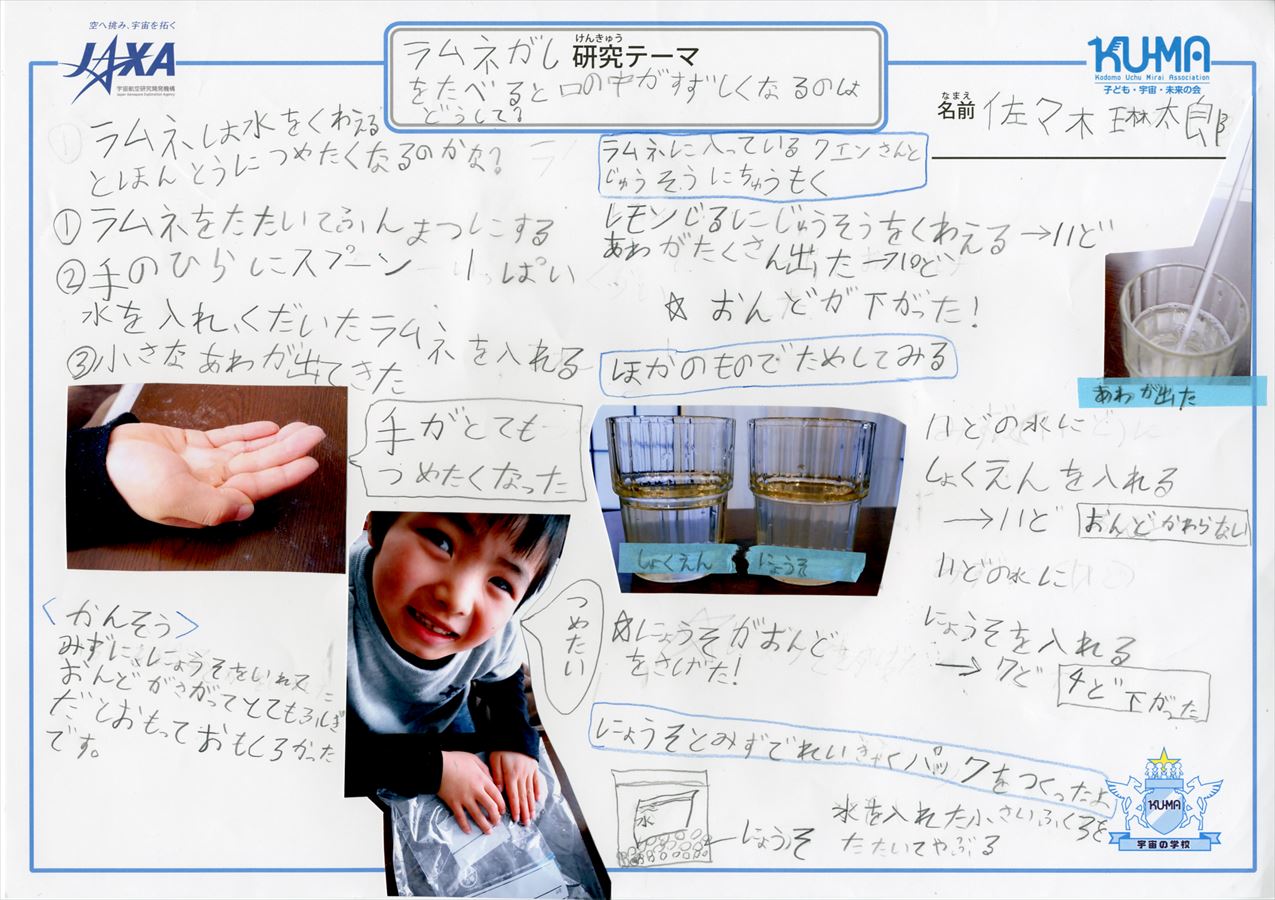 空へ挑み、宇宙を拓く
JAXA
宇宙航空研究開発機構
Japan Aerospace Exploration Agency
けんきゅう
ラムネがし 研究テーマ
をたべると口の中がすずしくなるのは
どうして?
KU-MA
Kodomo Uchu Mirai Association
子ども・宇宙・未来の会
なまえ
名前 佐々木 琳太郎
ラムネは水をくわえる
とほんとうにつめたくなるのかな?
①ラムネをたたいてふんまつにする
②手のひらにスプーン一りっぱい
水を入れ、くだいたラムネを入れる
③小さなあわが出てきた
手がとても
つめたくなった
つめたい
<かんそう>
みずに、にょうそをいれたら
おんどがさがってとてもふしぎ
だとおもっておもしろかった
です。
ラムネに入っているクエンさんと
じゅうそうにちゅうもく
レモンじるにじゅうそうをくわえる→11ど
あわがたくさん出た→10ど
☆おんどが下がった!
あわが出た
ほかのものでためしてみる
しょくえん
にょうそ
11どの水に
しょくえんを入れる
→11ど おんどかわらない
11どの水に
にょうそを入れる
→7ど 4ど下がった
☆にょうそがおんど
をさげた!
にょうそとみずでれいきゃくパックをつくったよ
水
にょうそ
水を入れた小さいふくろを
たたいてやぶる
KU-MA
宇宙の学校